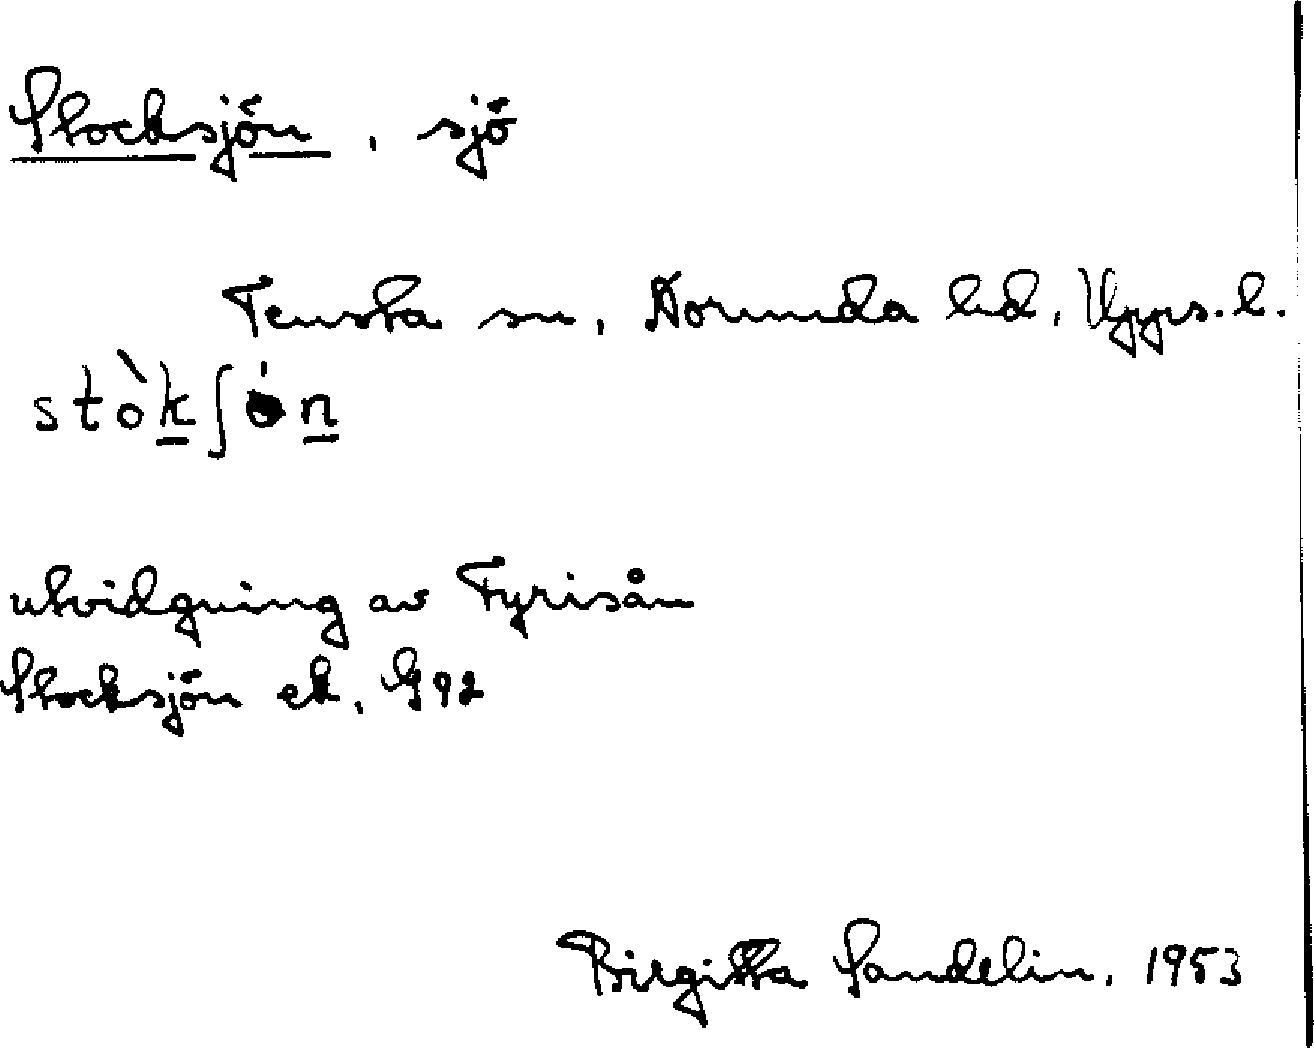 Stocksjön, sjö
Tensta sn, Norunda hd, Upps. l.
stòkʃön
utvidgning av Tyrisån
Stocksjön ek. G92
Birgitta Sandelin. 1953